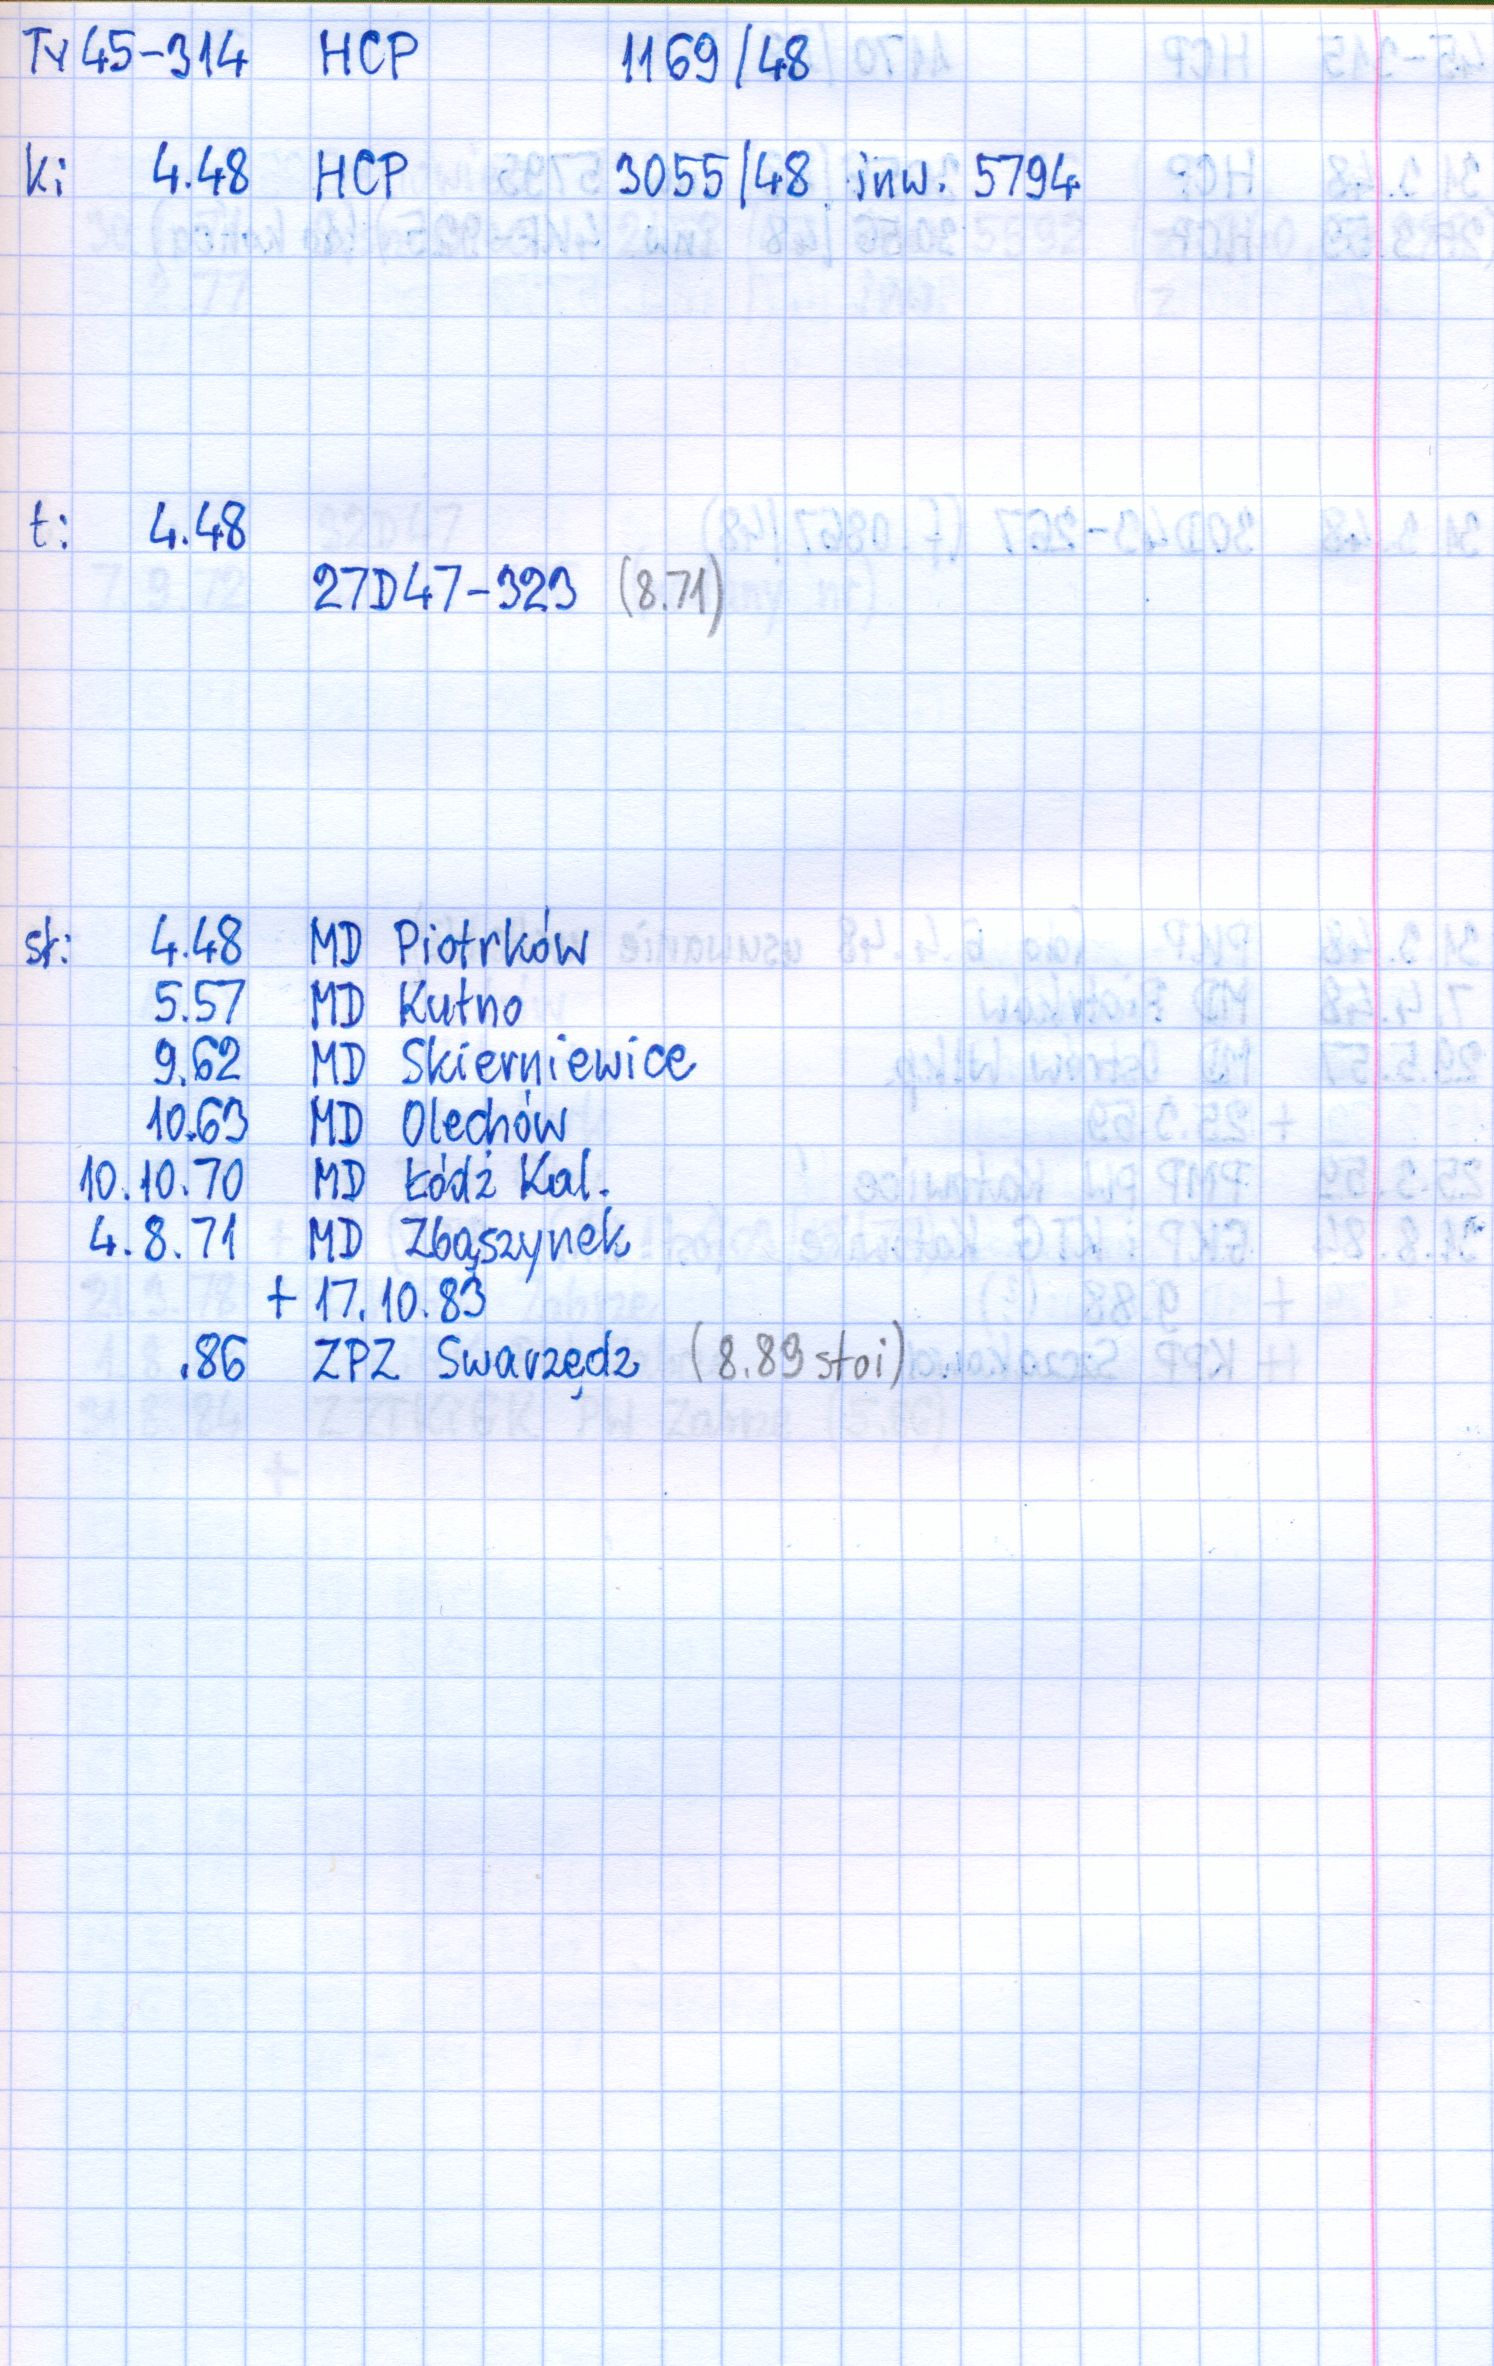 Ty45-314 HCP 1169/48
k: 4.48 HCP 3055/48 inw. 5794
t: 4.48
27D47-323 (8.71)
st: 4.48 MD Piotrków
5.57 MD Kutno
9.62 MD Skierniewice
10.63 MD Olechów
10.10.70 MD Łódź Kal.
4.8.71 MD Zbąszynek
+ 17.10.83
.86 ZPZ Swarzędz (8.89 stoi)